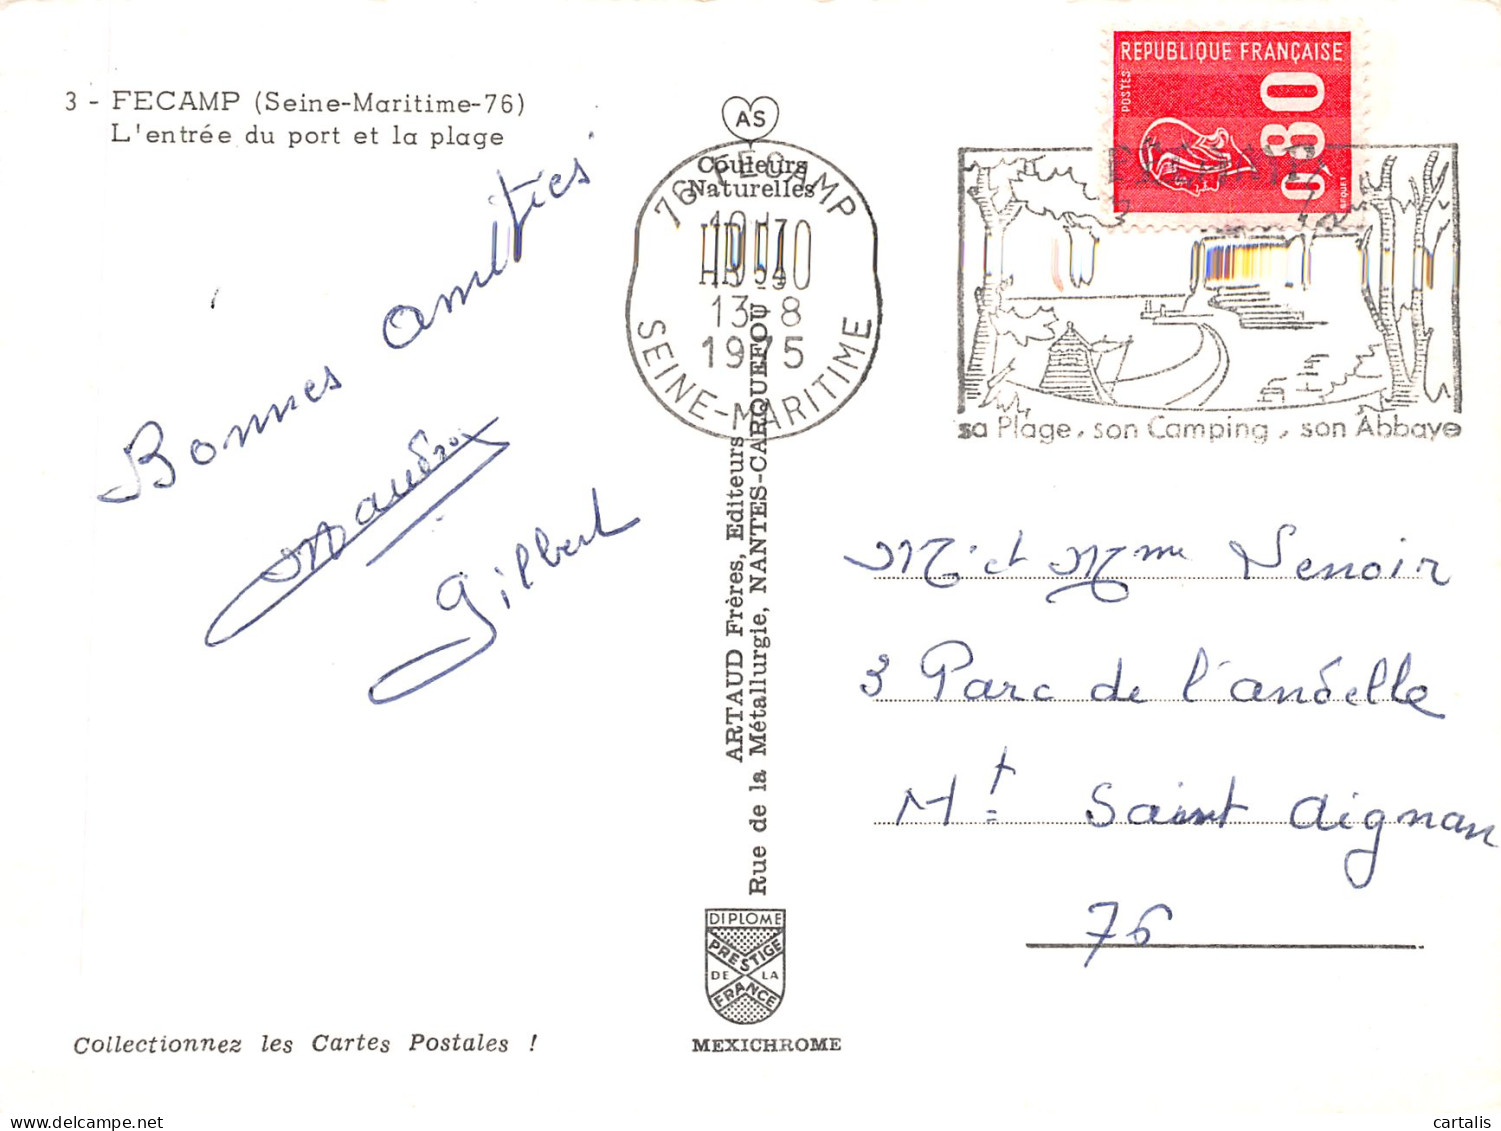 3 - FECAMP (Seine-Maritime-76)
L'entrée du port et la plage
Bonnes amitiés
Gilbert
Collectionnez les Cartes Postales !
AS
Couleurs
Naturelles
76 FECAMP
13-8
1975
SEINE-MARITIME
ARTAUD Frères, Editeurs
Rue de la Métallurgie, NANTES-CARQUEFOU
DIPLOME
PRESTIGE
DE LA
FRANCE
MEXICHROME
REPUBLIQUE FRANÇAISE
POSTES
0,80
BEQUET
FECAMP
sa Plage, son Camping, son Abbaye
Mr et Mme Lenoir
3 Parc de l'andelle
Mt Saint Aignan
76